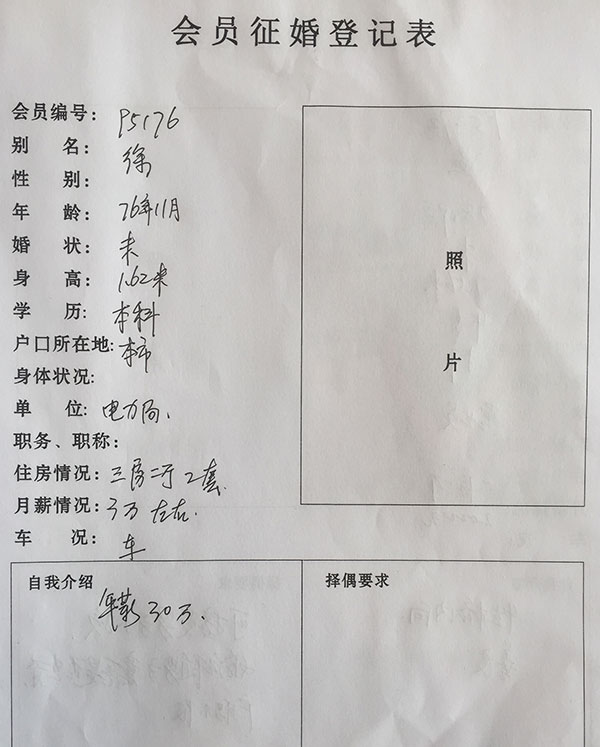 会员征婚登记表
会员编号: P5176
别 名: 徐
性 别:
年 龄: 76年11月
婚 状: 未
身 高: 1.62米
学 历: 本科
户口所在地: 本市
身体状况:
单 位: 电力局.
职务、职称:
住房情况: 三房二厅 2套.
月薪情况: 3万 左右.
车 况: 车
照
片
自我介绍
年薪 30万.
择偶要求